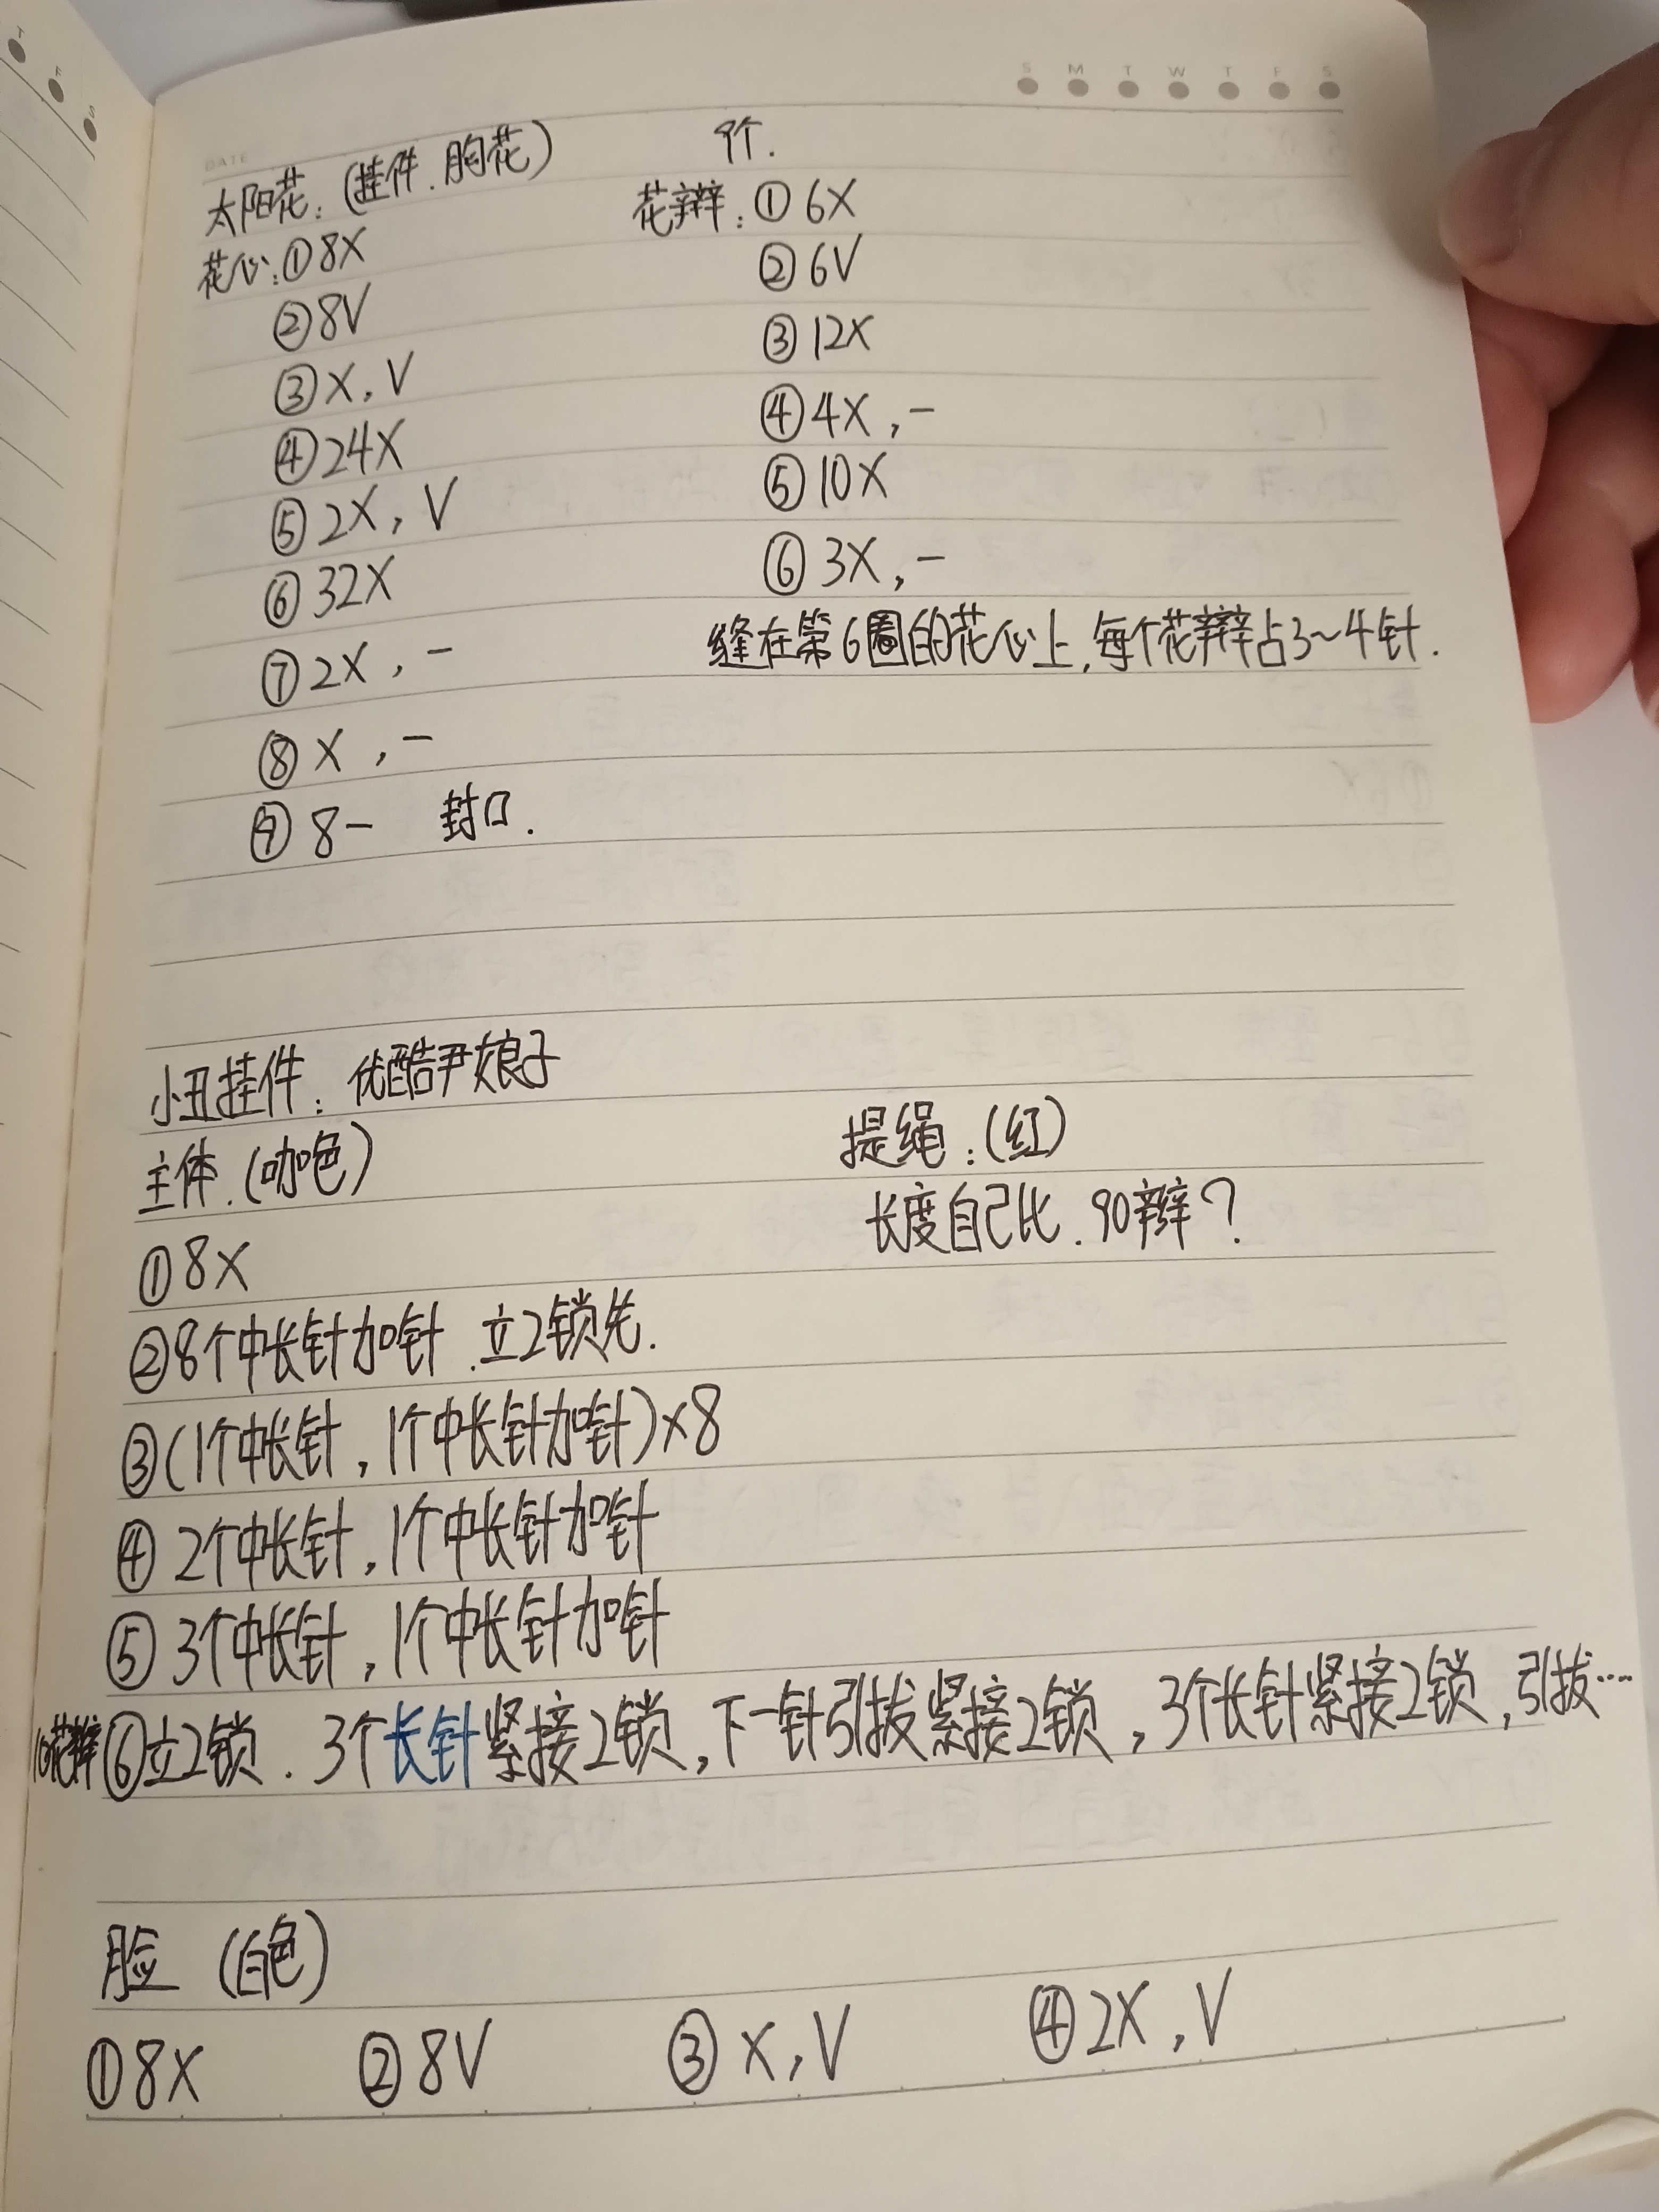 T F S
S M T W T F S
DATE
太阳花：(挂件.胸花)
花心：①8X
②8V
③X，V
④24X
⑤2X，V
⑥32X
⑦2X，-
⑧X，-
⑨8- 封口.
9个.
花瓣：①6X
②6V
③12X
④4X，-
⑤10X
⑥3X，-
缝在第6圈的花心上，每个花瓣占3~4针.
小丑挂件：优酷尹娘子
主体.(咖色)
①8X
②8个中长针加针.立2锁先.
③(1个中长针，1个中长针加针)×8
④2个中长针，1个中长针加针
⑤3个中长针，1个中长针加针
10花瓣⑥立2锁.3个长针紧接2锁，下一针引拔紧接2锁，3个长针紧接2锁，引拔…
提绳：(红)
长度自己比.90辫？
脸(白色)
①8X ②8V ③X，V ④2X，V